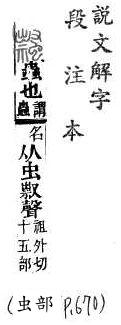 說文解字
段注本
蟲也謂蟲名从虫聲祖外切十五部
(虫部 P.670)